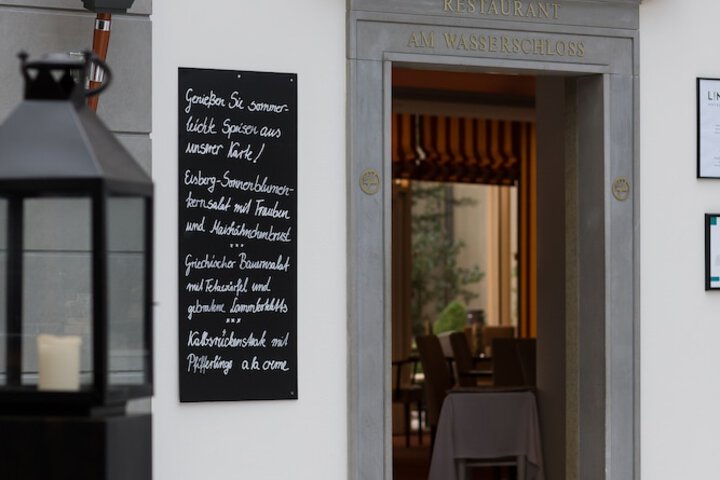 RESTAURANT
AM WASSERSCHLOSS
Genießen Sie sommer-
leichte Speisen aus
unserer Karte!
Eisberg-Sonnenblumen-
kernsalat mit Trauben
und Maishähnchenbrust
***
Griechischer Bauernsalat
mit Fetawürfel und
gebratene Lammkoteletts
***
Kalbsrückensteak mit
Pfifferlinge a la creme